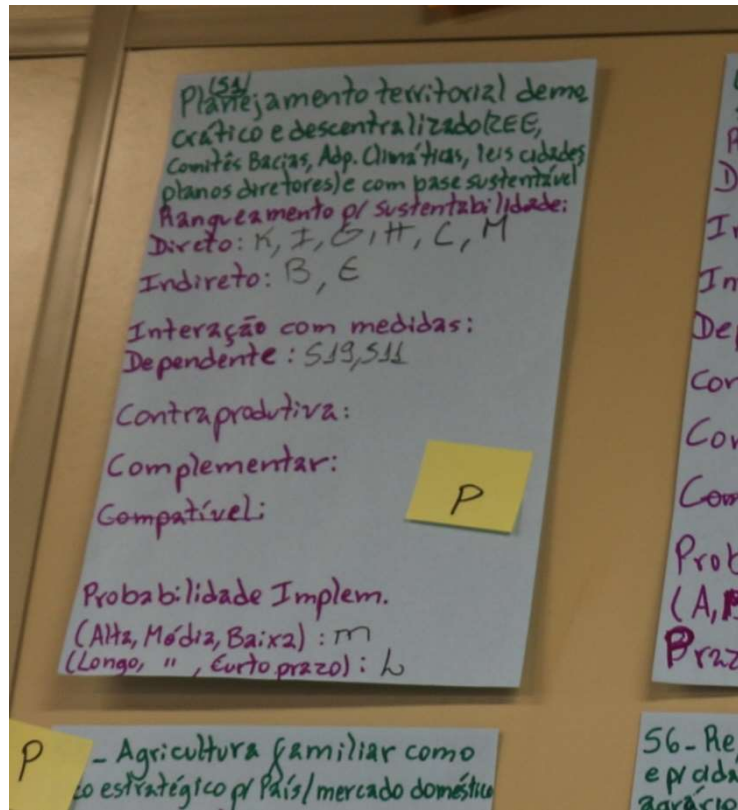 (S1)
Planejamento territorial demo
crático e descentralizado (ZEE,
Comitês Bacias, Adp. Climáticas, leis cidades,
planos diretores) e com base sustentável
Ranqueamento p/ sustentabilidade:
Direto: K, I, G, H, C, M
Indireto: B, E
Interação com medidas:
Dependente: S19, S11
Contraprodutiva:
Complementar:
Compatível:
P
Probabilidade Implem.
(Alta, Média, Baixa): m
(Longo, ", Curto prazo): L
P
- Agricultura familiar como
co estratégico p/ País/mercado doméstico
D
In
In
Dep
Con
Com
Com
Prob
Praz
S6- Re